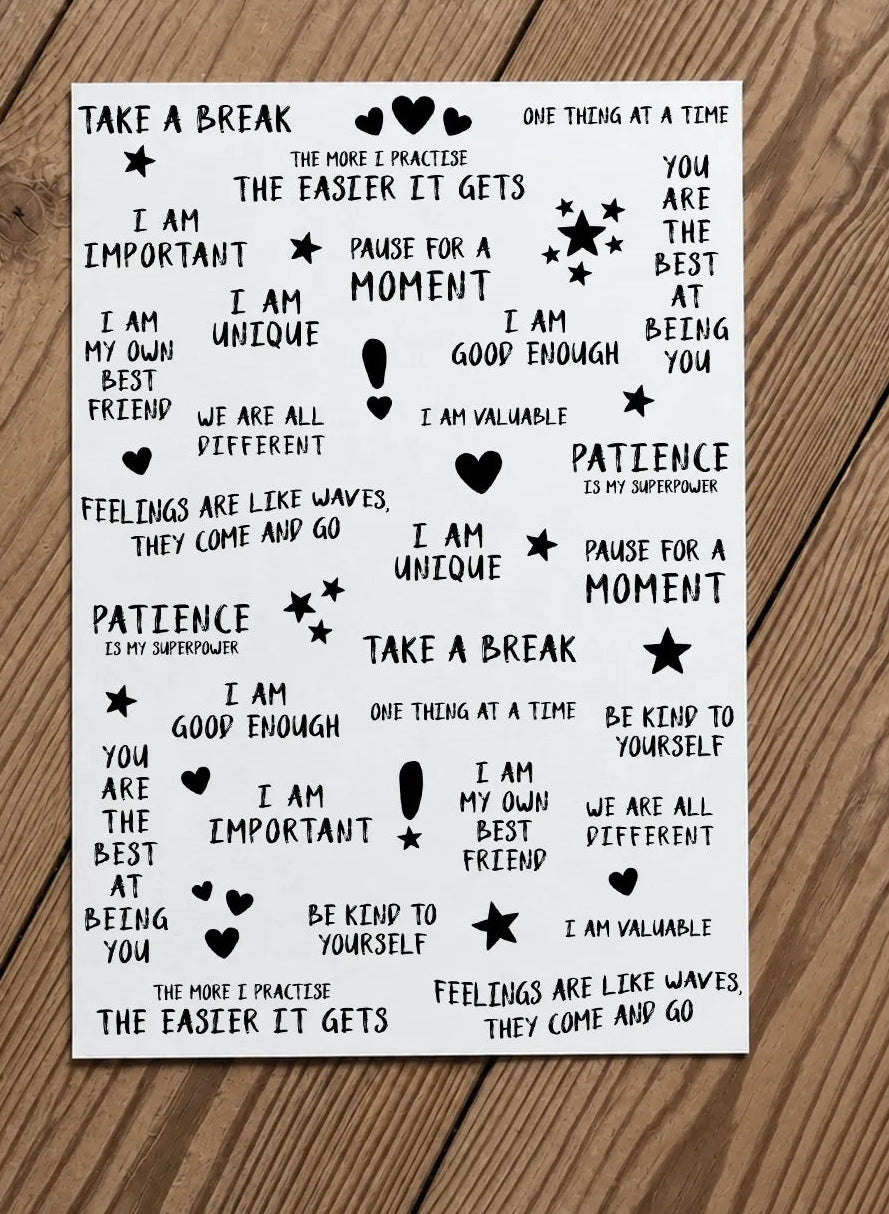 TAKE A BREAK
ONE THING AT A TIME
THE MORE I PRACTISE
THE EASIER IT GETS
YOU
ARE
THE
BEST
AT
BEING
YOU
I AM
IMPORTANT
PAUSE FOR A
MOMENT
I AM
UNIQUE
I AM
GOOD ENOUGH
I AM
MY OWN
BEST
FRIEND
WE ARE ALL
DIFFERENT
I AM VALUABLE
PATIENCE
IS MY SUPERPOWER
FEELINGS ARE LIKE WAVES,
THEY COME AND GO
I AM
UNIQUE
PAUSE FOR A
MOMENT
PATIENCE
IS MY SUPERPOWER
TAKE A BREAK
I AM
GOOD ENOUGH
ONE THING AT A TIME
BE KIND TO
YOURSELF
YOU
ARE
THE
BEST
AT
BEING
YOU
I AM
IMPORTANT
I AM
MY OWN
BEST
FRIEND
WE ARE ALL
DIFFERENT
BE KIND TO
YOURSELF
I AM VALUABLE
THE MORE I PRACTISE
THE EASIER IT GETS
FEELINGS ARE LIKE WAVES,
THEY COME AND GO